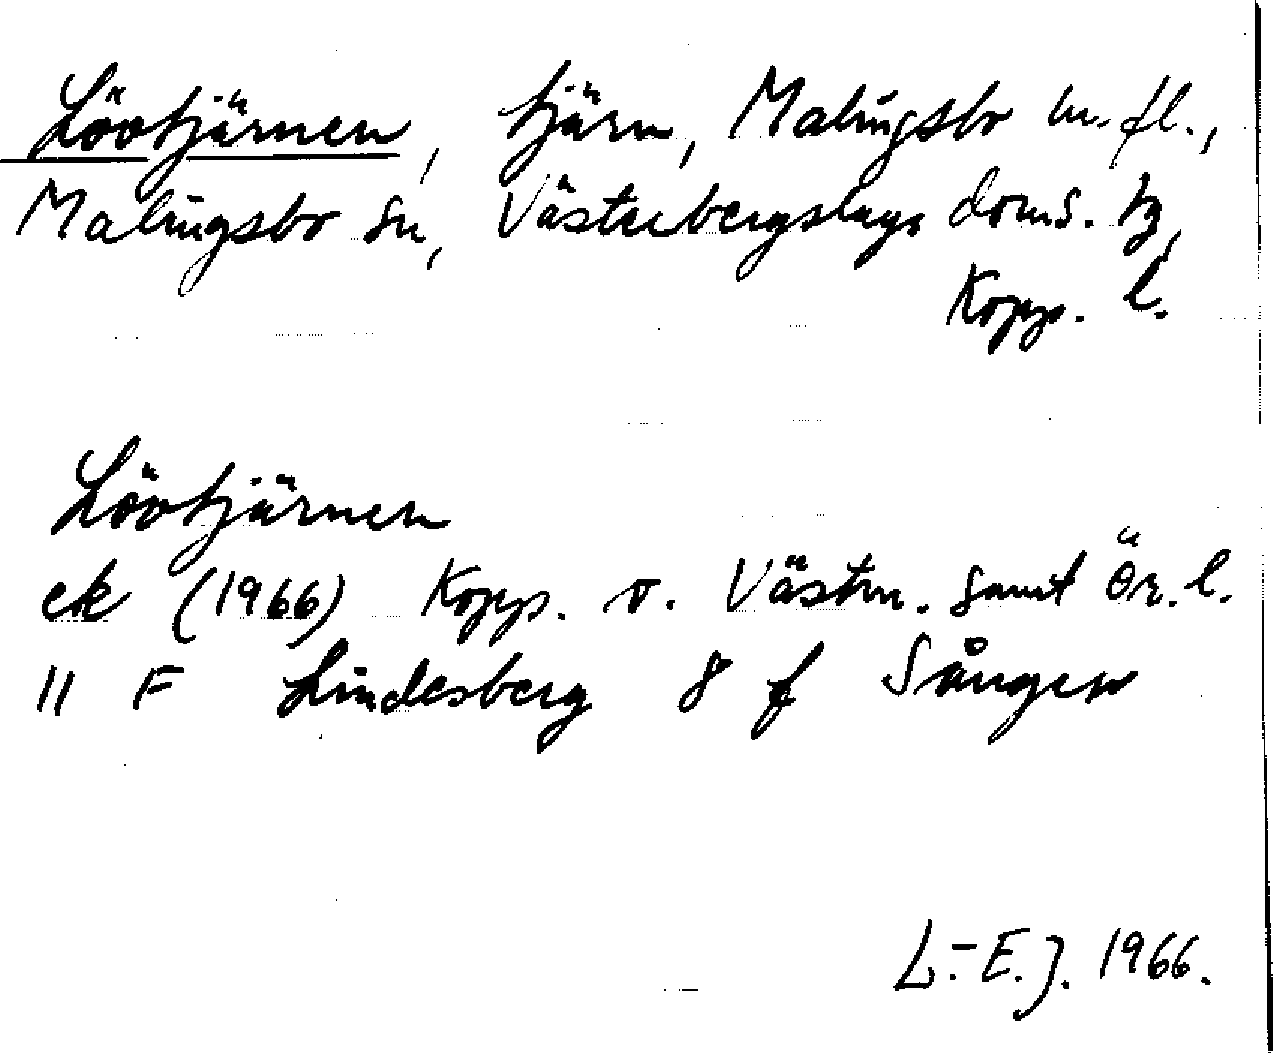 Lövtjärnen, tjärn, Malingsbo m. fl.,
Malingsbo sn, Västerbergslags doms. tg,
Kopp. l.
Lövtjärnen
ek (1966) Kopp. o. Västm. samt Ör. l.
11 F Lindesberg 8 f Sången
L.-E. J. 1966.